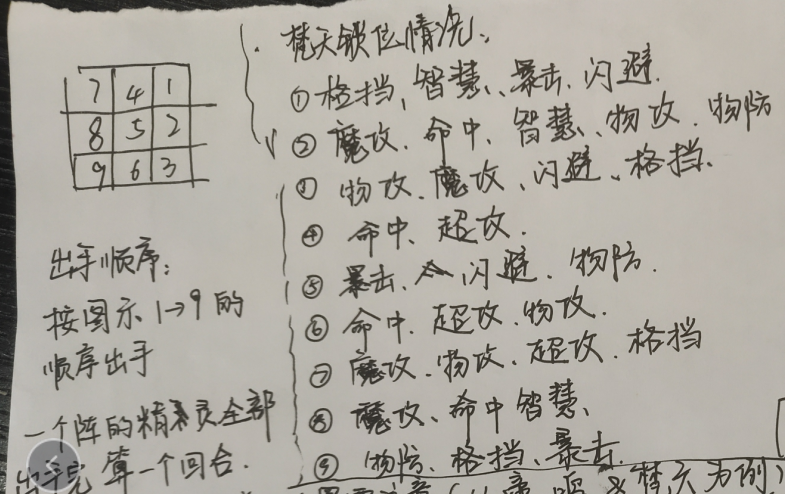 7 4 1
8 5 2
9 6 3
出手顺序:
按图示 1→9 的
顺序出手
一个阵的精灵全部
出手完算一个回合.
梵天锁位情况:
①格挡、智慧、暴击、闪避.
②魔攻、命中、智慧、物攻、物防
③物攻、魔攻、闪避、格挡.
④命中、超攻.
⑤暴击、闪避、物防.
⑥命中、超攻、物攻.
⑦魔攻、物攻、超攻、格挡
⑧魔攻、命中 智慧、
⑨物防、格挡、暴击.
梵天为例)